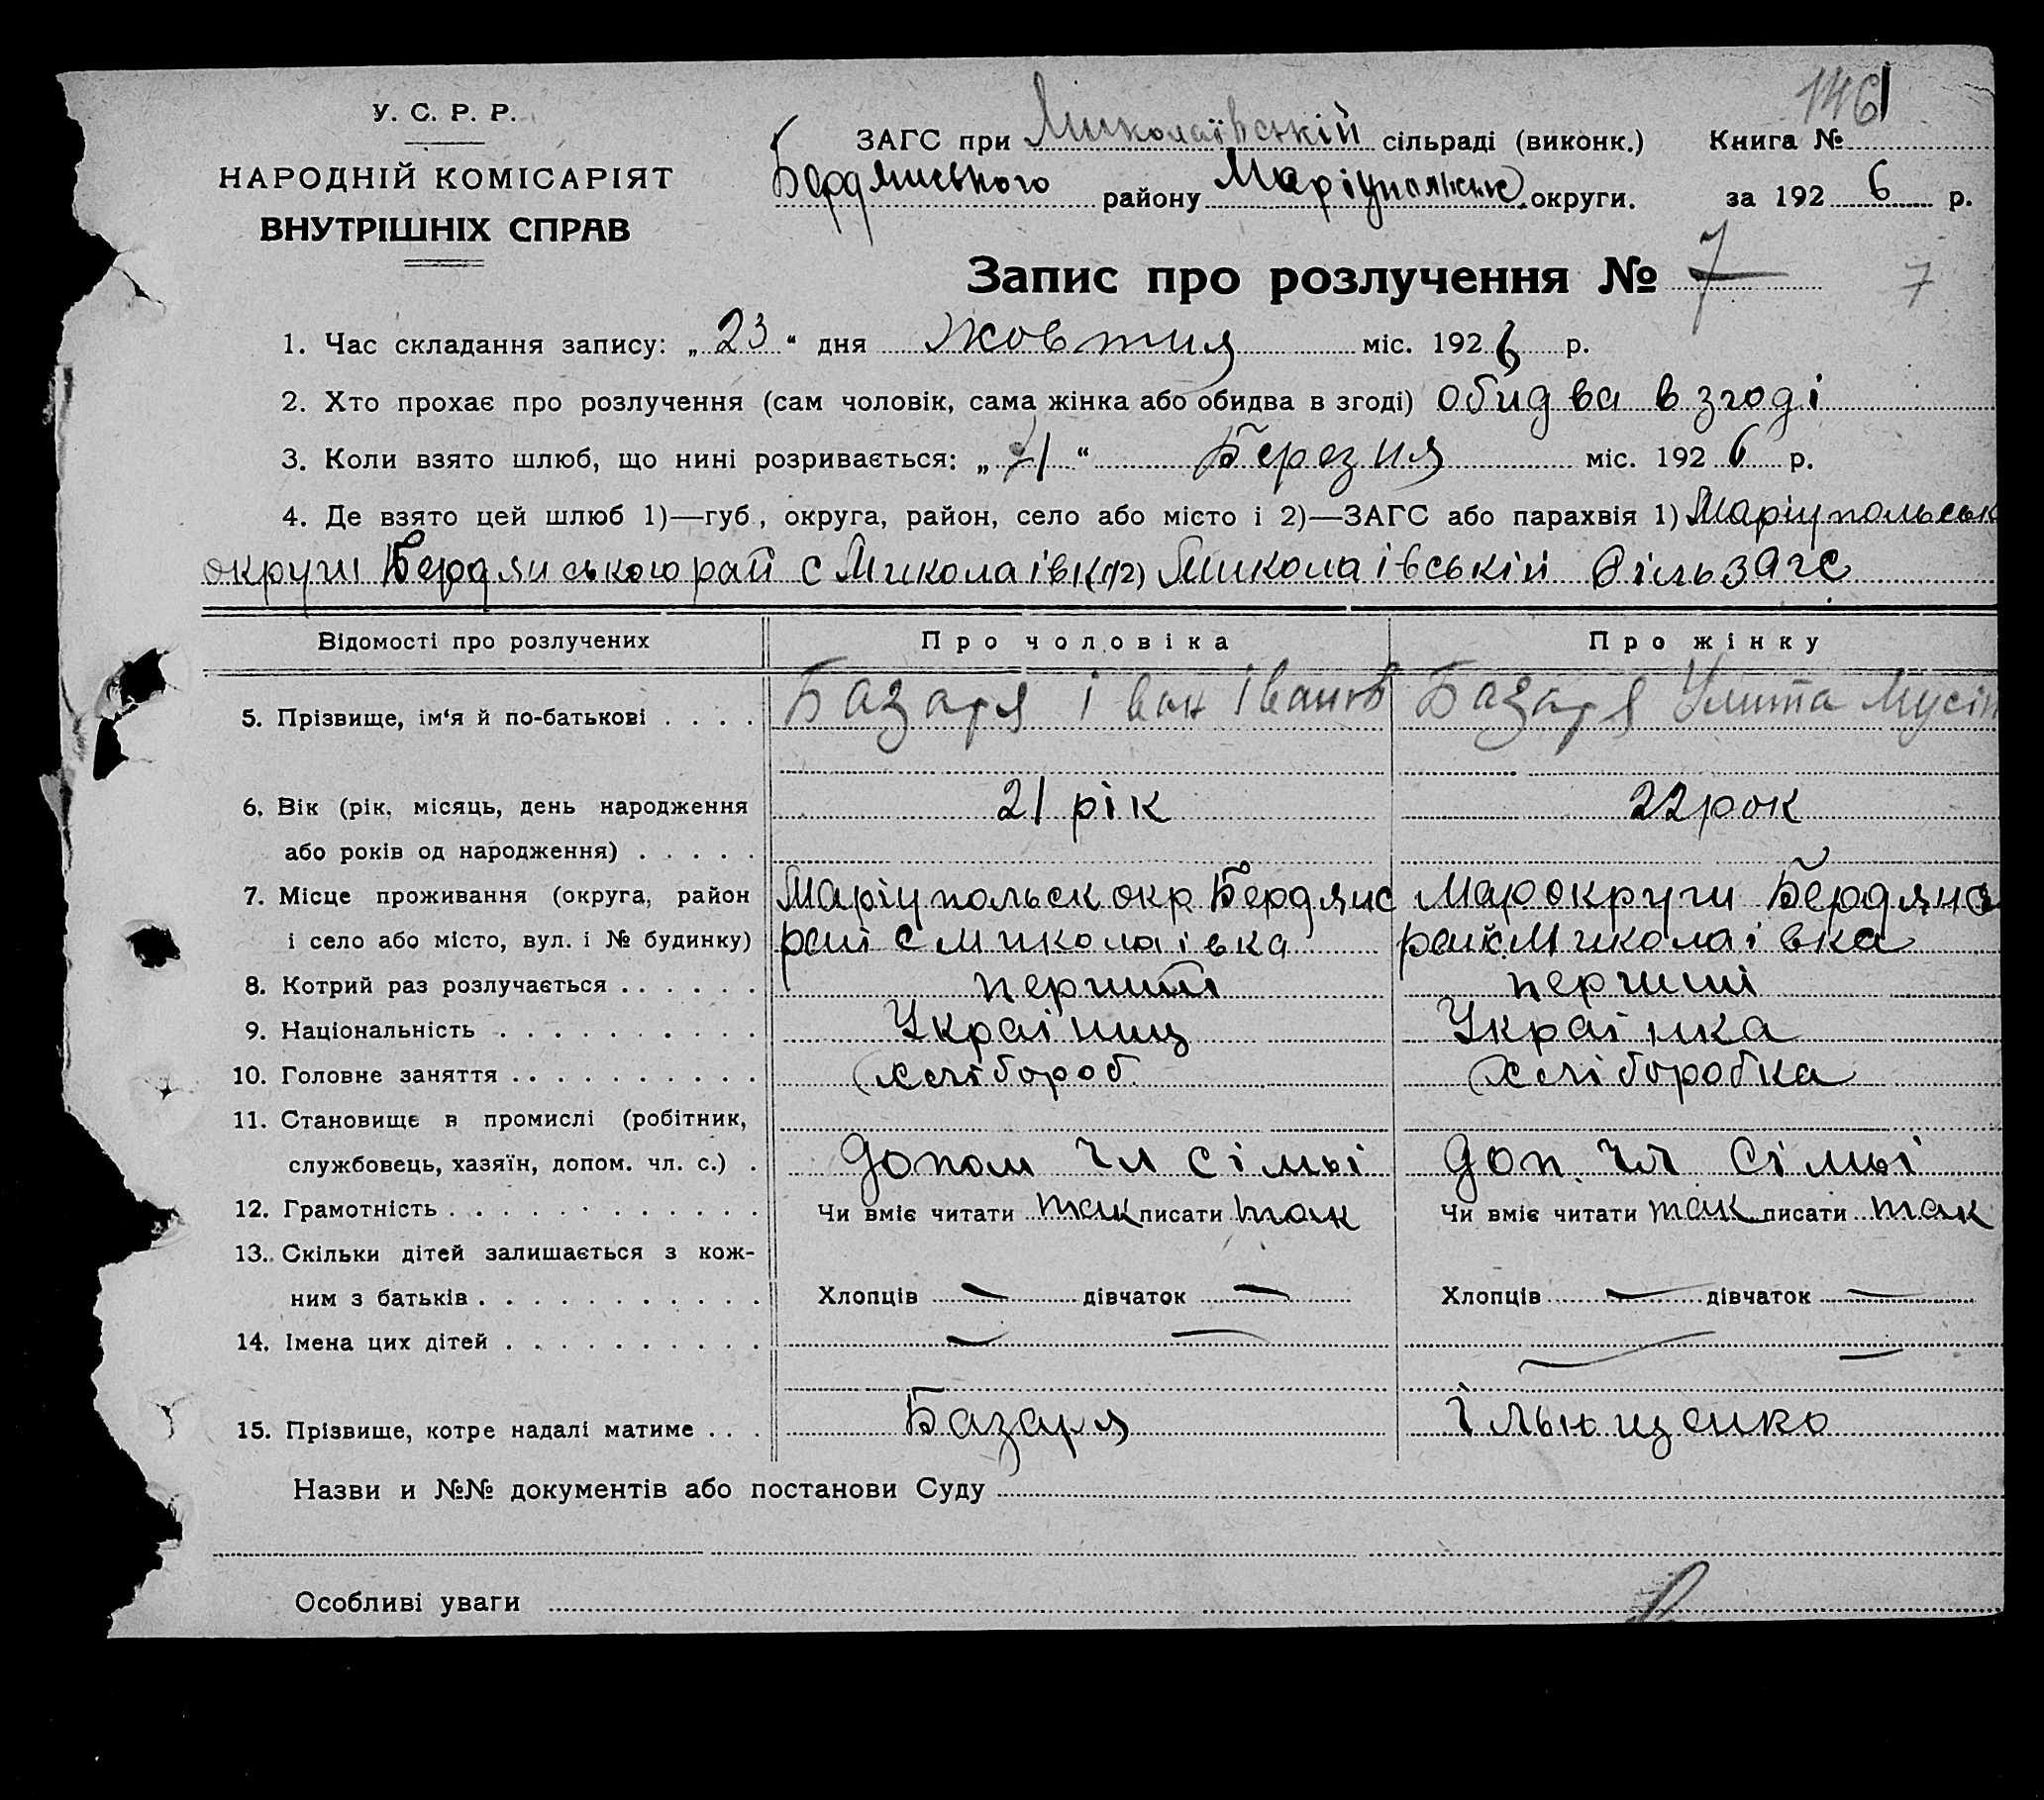 У. С. Р. Р.
НАРОДНІЙ КОМІСАРІЯТ
ВНУТРІШНІХ СПРАВ
1461
ЗАГС при Миколаївській сільраді (виконк.) Книга №
Бердянського району Маріупольськ округи. за 1926 р.
Запис про розлучення № 7 7
1. Час складання запису: „23“ дня жовтня міс. 1926 р.
2. Хто прохає про розлучення (сам чоловік, сама жінка або обидва в згоді) обидва в згоді
3. Коли взято шлюб, що нині розривається: „ “ Березня міс. 1926 р.
4. Де взято цей шлюб 1)—губ., округа, район, село або місто і 2)—ЗАГС або парахвія 1) Маріупольськ
округи Бердянського рай с Миколаівк 2) Миколаівській сільзагс
Відомості про розлучених Про чоловіка Про жінку
5. Прізвище, ім‘я й по-батькові . . . . Базаря Іван Іванов Базаря Улита Мусін
6. Вік (рік, місяць, день народження 21 рік 22 рок
або років од народження) . . . . .
7. Місце проживання (округа, район Маріупольск окр Бердянс Мар округи Бердянс
і село або місто, вул. і № будинку) рай с Миколаівка рай с. Миколаівка
8. Котрий раз розлучається . . . . . . перший перший
9. Національність . . . . . . . . . . Украіниц Украінка
10. Головне заняття . . . . . . . . . . хлібороб хліборобка
11. Становище в промислі (робітник,
службовець, хазяїн, допом. чл. с.) . допом чл сімьі доп. чл сімьі
12. Грамотність . . . . . . . . . . . . Чи вміє читати так писати так Чи вміє читати так писати так
13. Скільки дітей залишається з кож-
ним з батьків . . . . . . . . . . . Хлопців — дівчаток — Хлопців — дівчаток —
14. Імена цих дітей . . . . . . . . . . — — — —
15. Прізвище, котре надалі матиме . . . Базаря Ільющенко
Назви и №№ документів або постанови Суду
Особливі уваги